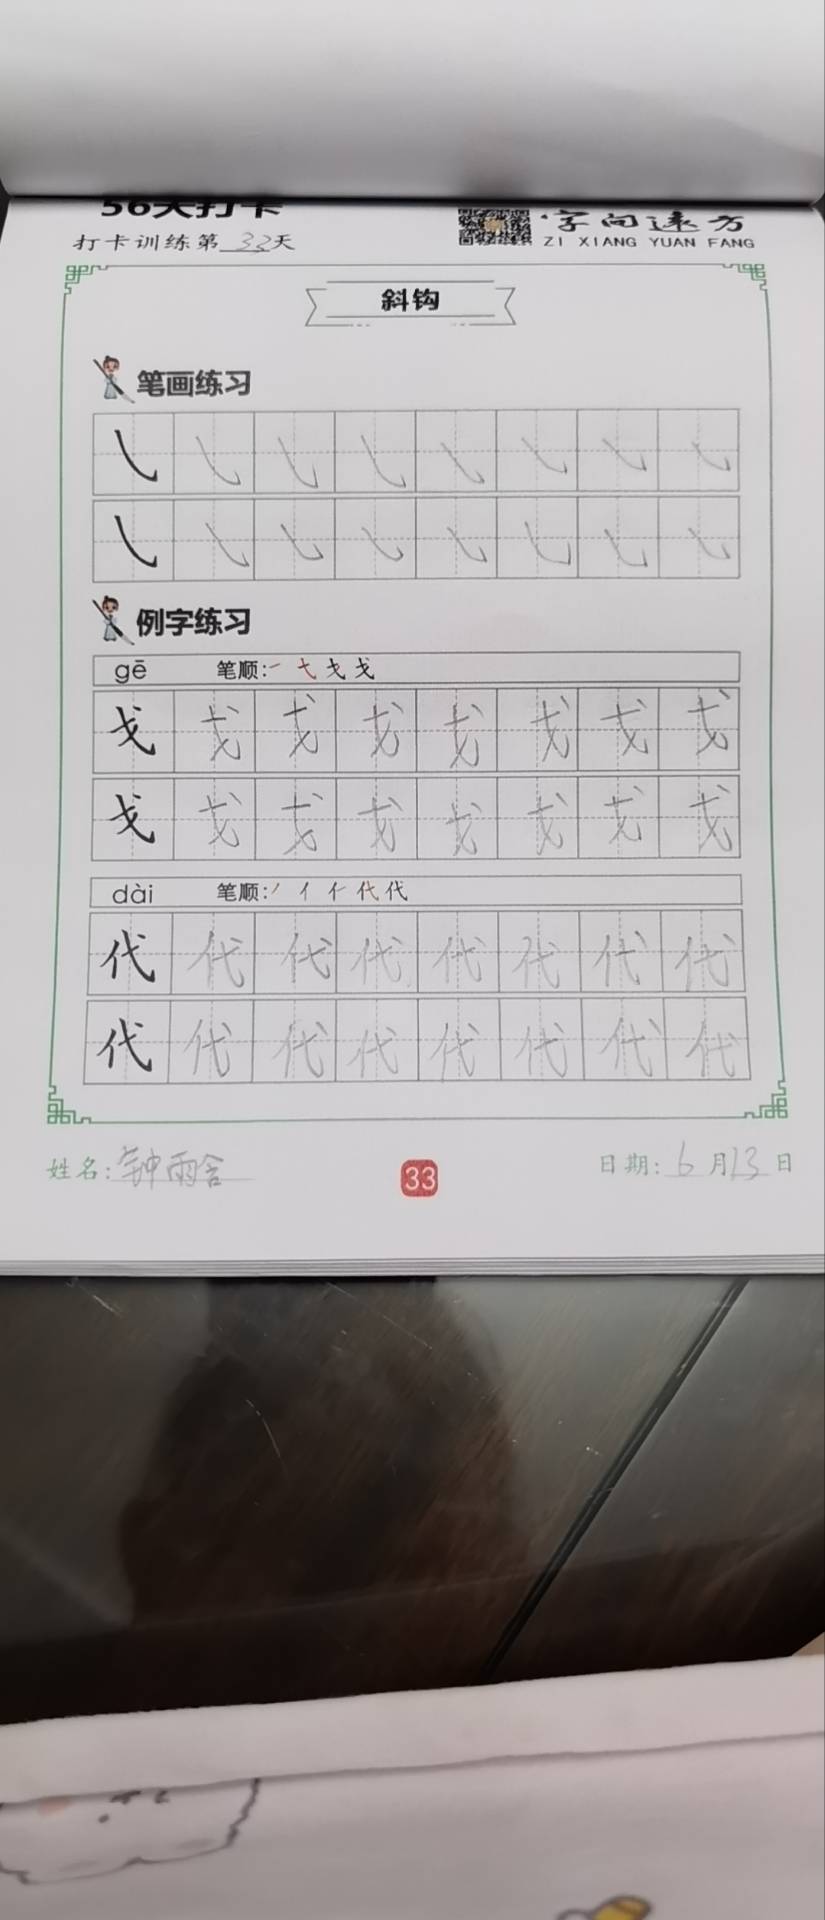 56天打卡
打卡训练第33天
字向远方
ZI XIANG YUAN FANG
斜钩
笔画练习
㇂ ㇂ ㇂ ㇂ ㇂ ㇂ ㇂ ㇂
㇂ ㇂ ㇂ ㇂ ㇂ ㇂ ㇂ ㇂
例字练习
gē 笔顺:一 弋 戈 戈
戈 戈 戈 戈 戈 戈 戈 戈
戈 戈 戈 戈 戈 戈 戈 戈
dài 笔顺:丿 亻 仁 代 代
代 代 代 代 代 代 代 代
代 代 代 代 代 代 代 代
姓名:钟雨含
33
日期:6月13日